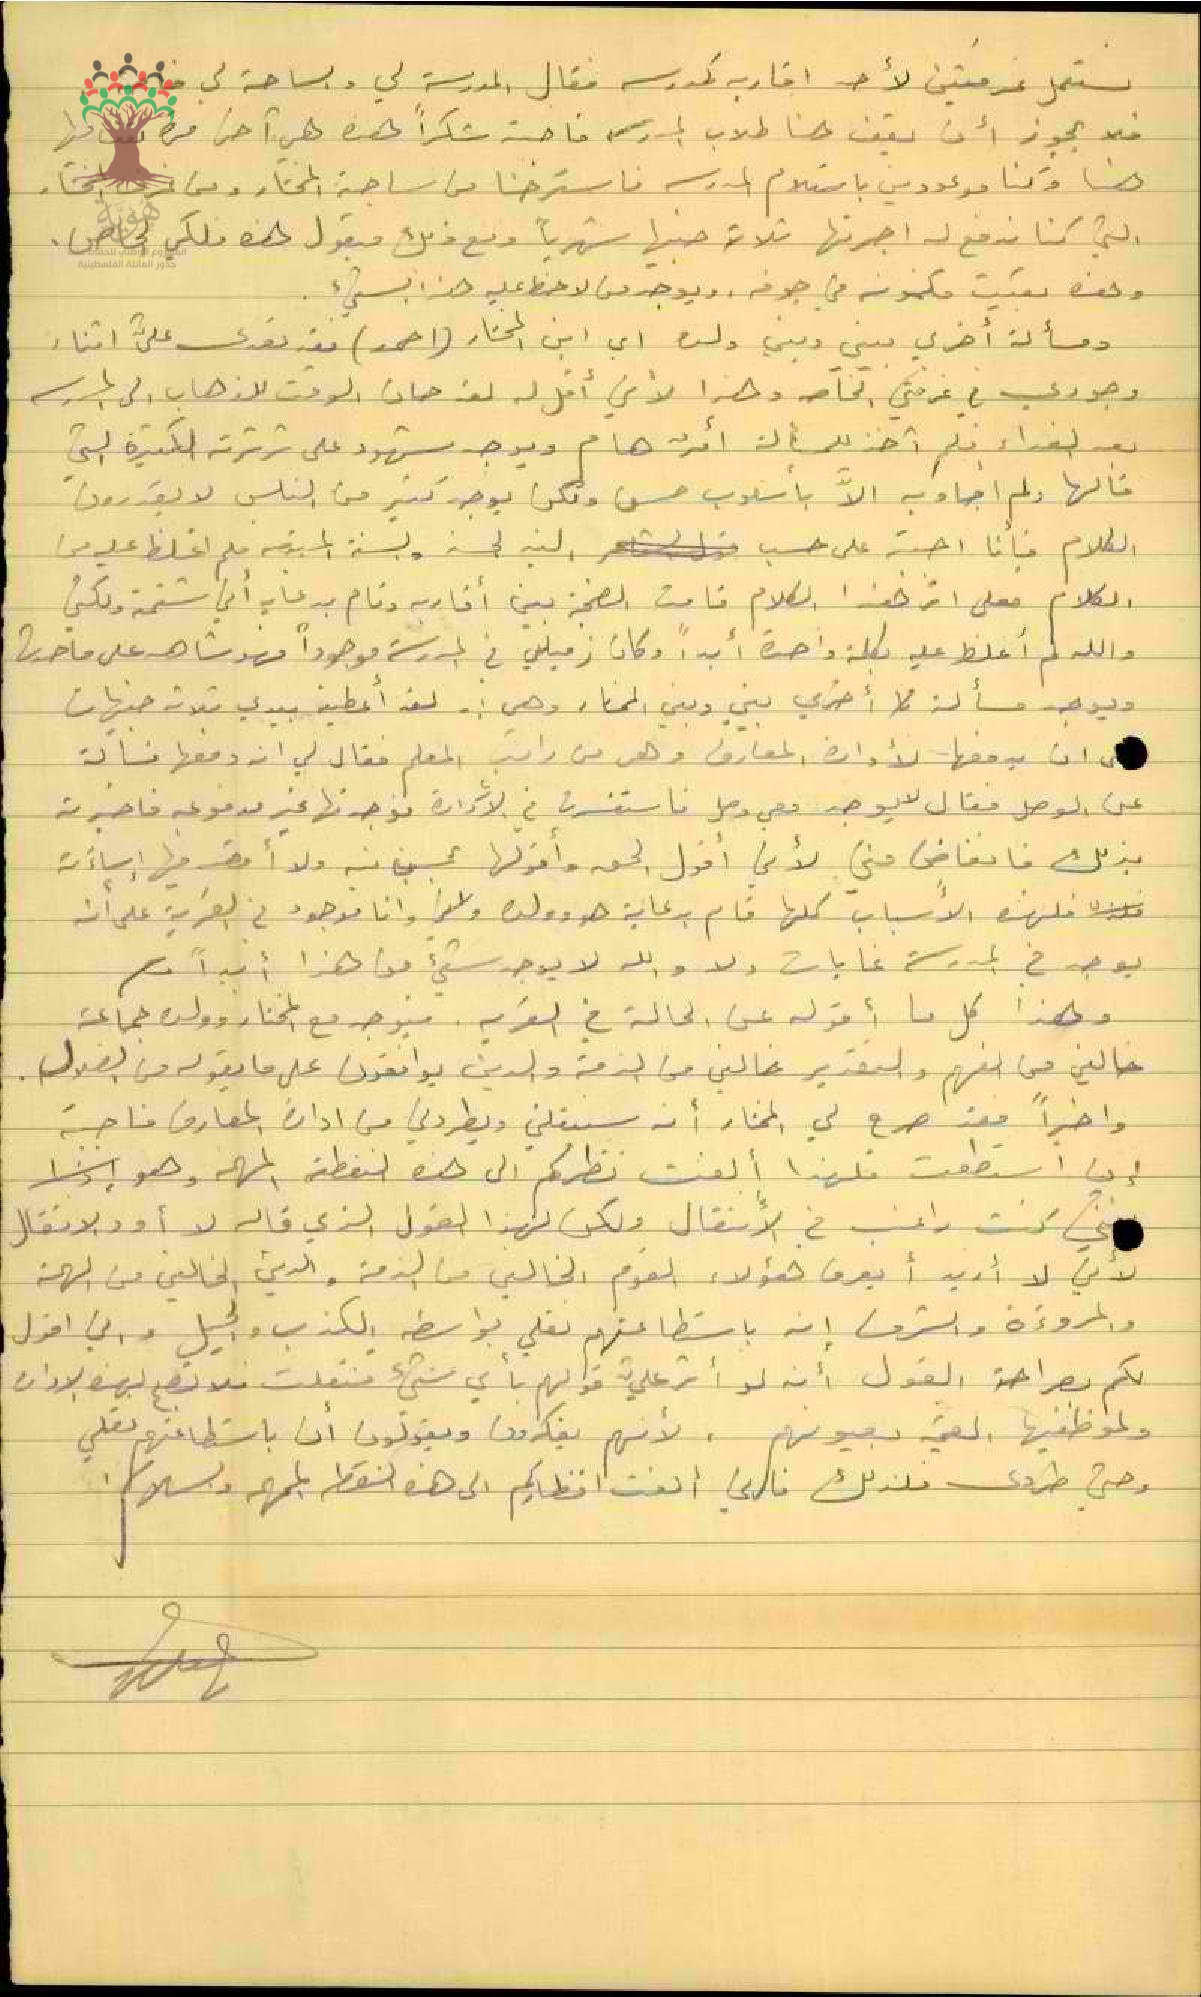 نستعمل غرفتين لأحد اقاربه كمدرسه فقال المدرسة لي والساحة لي
فلا يجوز أن يقف هنا طلاب المدرسه فاجبته شكراً هذه هي آخر مرة
هنا وكنا موعودين باستلام المدرسه فاسترحنا من ساحة المختار ومن غرفة المختار
التي كنا ندفع له اجرتها ثلاثة جنيها شهرياً ومع ذلك فيقول هذه ملكي الخاص.
وهذه بقيت مكمونه في جوفه. ويوجد من لاحظ عليه هذا الشيء.
ومسألة أخرى بيني وبين ولده اي ابن المختار (احمد) فقد تعدى عليّ اثناء
وجودي في غرفتي الخاصه وهذا لأني أقل له لقد حان الوقت للذهاب الى المدرسه
بعد الغداء فلم آخذ المسألة أمر هام ويوجد شهود على ثرثرته الكثيرة التي
قالها ولم اجاوبه الاّ بأسلوب حسن ولكن يوجد كثير من الناس لا يقدرون
الكلام فأنا اجبته على حسب النيه الحسنه فلم اغلظ عليه من
الكلام فعلى اثر هذا الكلام قامت الضجة بين أقاربه وقام بدعايه أني شتمته ولكني
والله لم أغلظ عليه بكلمة واحدة أبداً وكان زميلي في المدرسة موجوداً فهو شاهد على ما حدث
ويوجد مسألة أخرى بيني وبين المختار وهي لقد أعطيته بيدي ثلاثة جنيهات
على ان يدفعها لأدارة المعارف وهي من راتب المعلم فقال لي انه دفعها فسألته
عن الوصل فقال لا يوجد معي وصل فاستفسرت في الادارة فوجدتها غير مدفوعه فاخبرته
بذلك فانغاض مني لأني أقول الحق وأقولها بحسن نيه ولا أقصد فيها إساءته
فلهذه الأسباب كلها قام بدعاية هو وولده وانا موجود في القرية على أنه
يوجد في المدرسة غابات ولا والله لا يوجد شيء من هذا أبداً
وهذا كل ما أقوله عن الحالة في القريه. فيوجد مع المختار وولده جماعة
خالين من الفهم والتقدير خالين من الذمة والدين يوافقون على ما يقوله من الضلال.
واخيراً فقد صرح لي المختار أنه سينقلني ويطردني من ادارة المعارف فاجبته
إن استطعت فلهذا ألفت نظركم الى هذه النقطة المهمه وهو
كنت راغب في الأنتقال ولكن لهذا القول الذي قاله لا أود الانتقال
لأني لا أريد أ يعرف هؤلاء القوم الخالين من الذمة والدين الخالين من الهمة
والمروءة والشرف إنه باستطاعتهم نقلي بواسطة الكذب والحيل واني اقول
لكم بصراحة القول أنه لو أثر عليّ قولهم بأي شيء فنقلت فلا لهذه الادارة
ولموظفيها القيمة بعيونهم. لأنهم يفكرون ويقولون أن باستطاعتهم نقلي
وحتى طردي فلذلك فاني ألفت انظاركم الى هذه النقطه المهمه والسلام